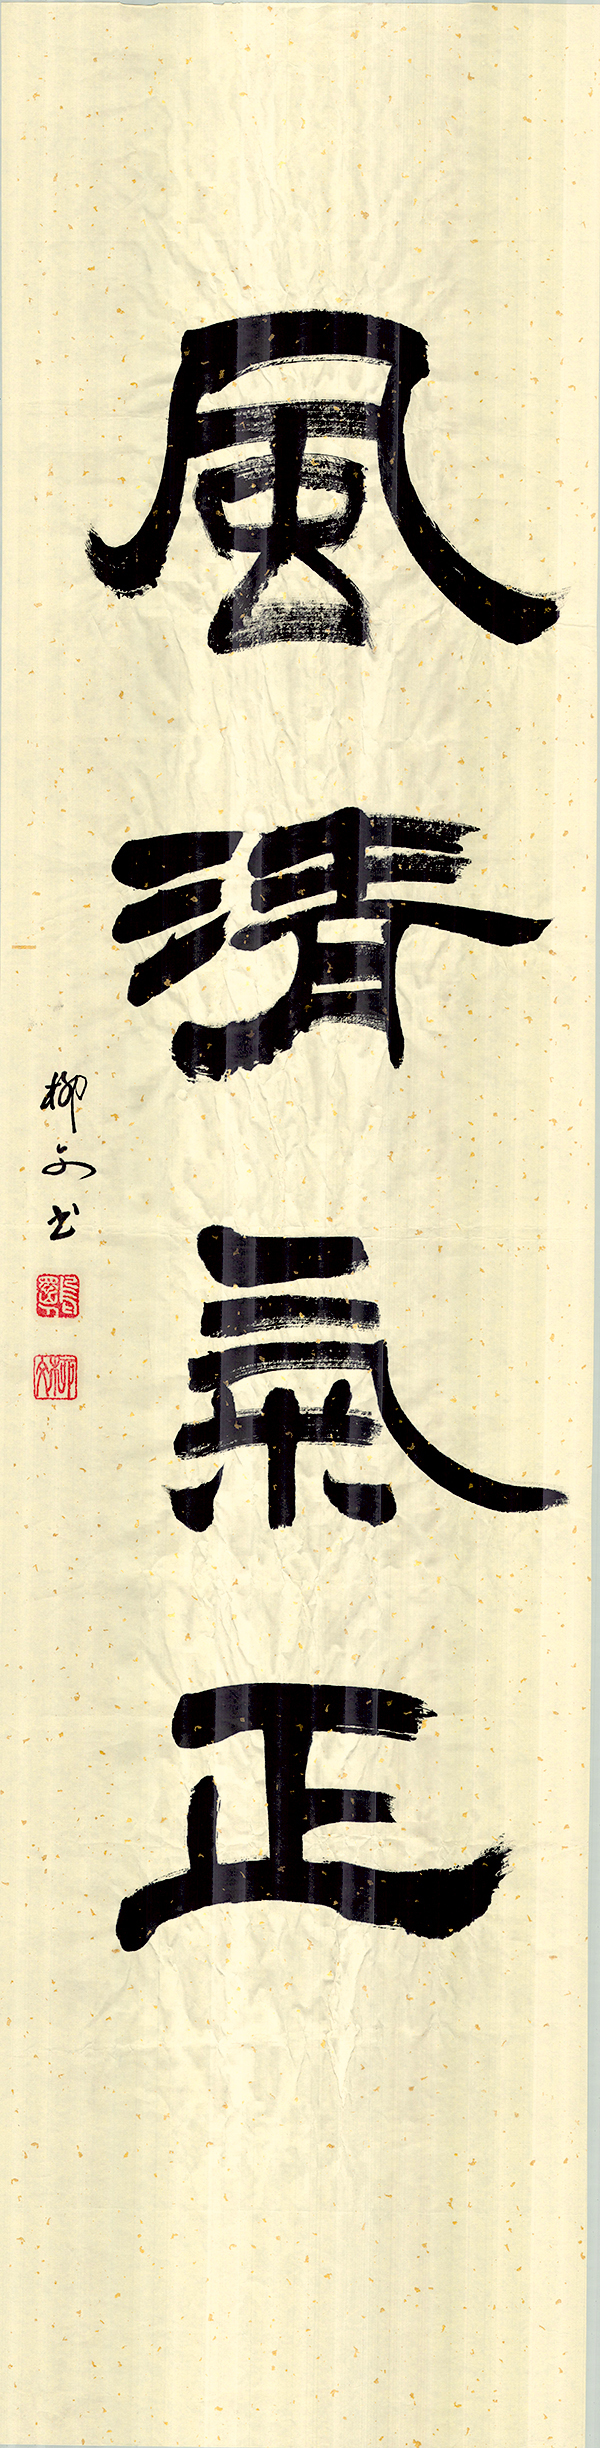 風清氣正
柳文书